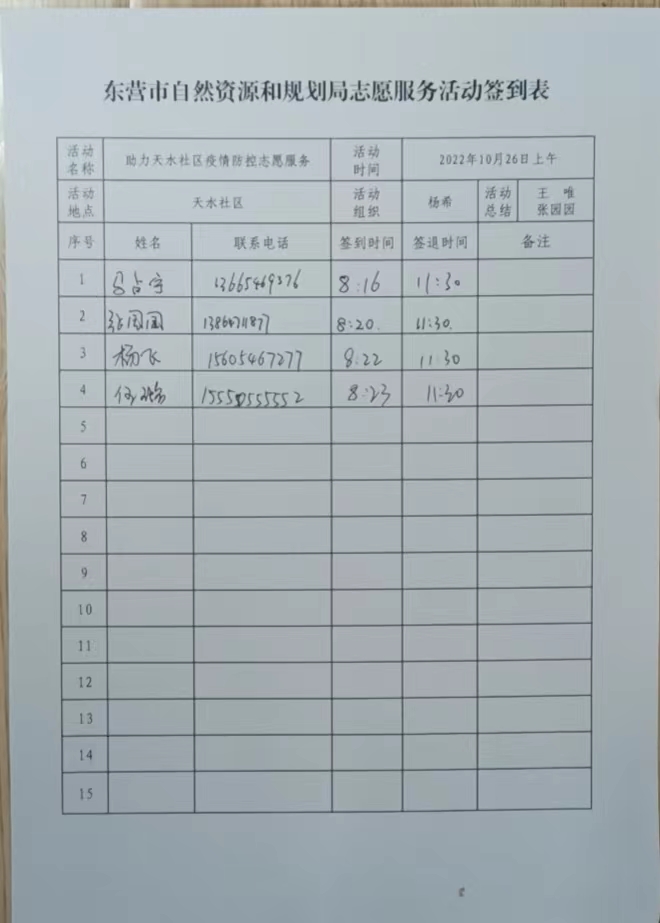 东营市自然资源和规划局志愿服务活动签到表
活动名称 助力天水社区疫情防控志愿服务 活动时间 2022年10月26日上午
活动地点 天水社区 活动组织 杨希 活动总结 王唯 张园园
序号 姓名 联系电话 签到时间 签退时间 备注
1 吕占宇 13665469376 8:16 11:30
2 张园园 8:20. 11:30.
3 杨飞 15605467277 8:22 11:30
4 15550555552 8:23 11:30
5
6
7
8
9
10
11
12
13
14
15